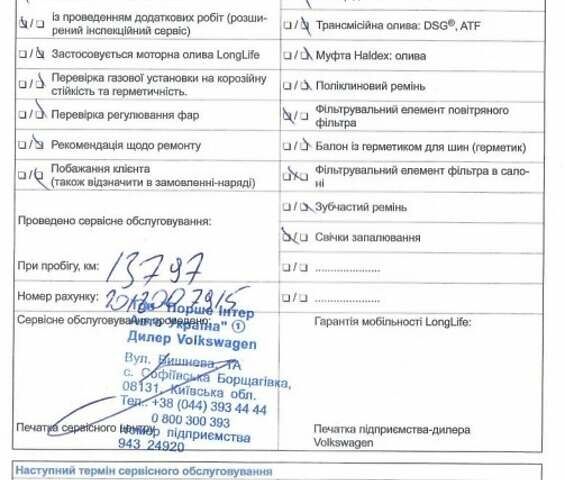 із проведенням додаткових робіт (розши-
рений інспекційний сервіс)
Застосовується моторна олива LongLife
Перевірка газової установки на корозійну
стійкість та герметичність.
Перевірка регулювання фар
Рекомендація щодо ремонту
Побажання клієнта
(також відзначити в замовленні-наряді)
Проведено сервісне обслуговування:
При пробігу, км: 13797
Номер рахунку:
Сервісне обслуговування проведено:
"Порше Інтер
Авто Україна" 1
Дилер Volkswagen
Вул. Вишнева, 1А
с. Софіївська Борщагівка,
08131, Київська обл.
Тел.: +38 (044) 393 44 44
0 800 300 393
Номер підприємства
943 24920
Печатка сервісного центру
Трансмісійна олива: DSG®, ATF
Муфта Haldex: олива
Поліклиновий ремінь
Фільтрувальний елемент повітряного
фільтра
Балон із герметиком для шин (герметик)
Фільтрувальний елемент фільтра в сало-
ні
Зубчастий ремінь
Свічки запалювання
Гарантія мобільності LongLife:
Печатка підприємства-дилера
Volkswagen
Наступний термін сервісного обслуговування